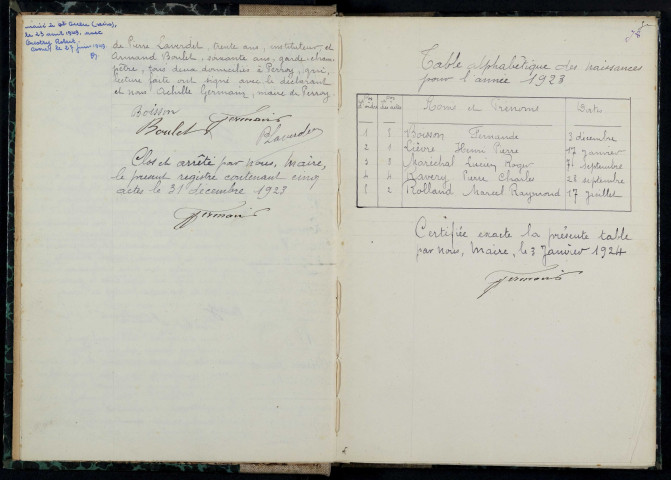 marié le
le 23 avril 1949, avec
de Pierre Laverdet, trente ans, instituteur, et
Armand Boulet, soixante ans, garde-cham
pêtre, tous deux domiciliés à Perroy, qui,
lecture faite ont signé avec le déclarant
et nous Achille Germain, maire de Perroy.
Boisson
Germain
Boulet
P Laverdet
Clos et arrêté par nous, Maire,
le présent registre contenant cinq
actes le 31 décembre 1923
Germain
Table alphabétique des naissances
pour l'année 1923
Nos d'ordre Nos des actes Noms et Prénoms Date
1 5 Boisson Fernande 3 décembre
2 1 Lièvre Henri Pierre 17 janvier
3 3 Maréchal Lucien Roger 7 septembre
4 4 Ravery Pierre Charles 28 septembre
5 2 Rolland Marcel Raymond 17 juillet
Certifiée exacte la présente table
par nous, Maire, le 3 Janvier 1924
Germain